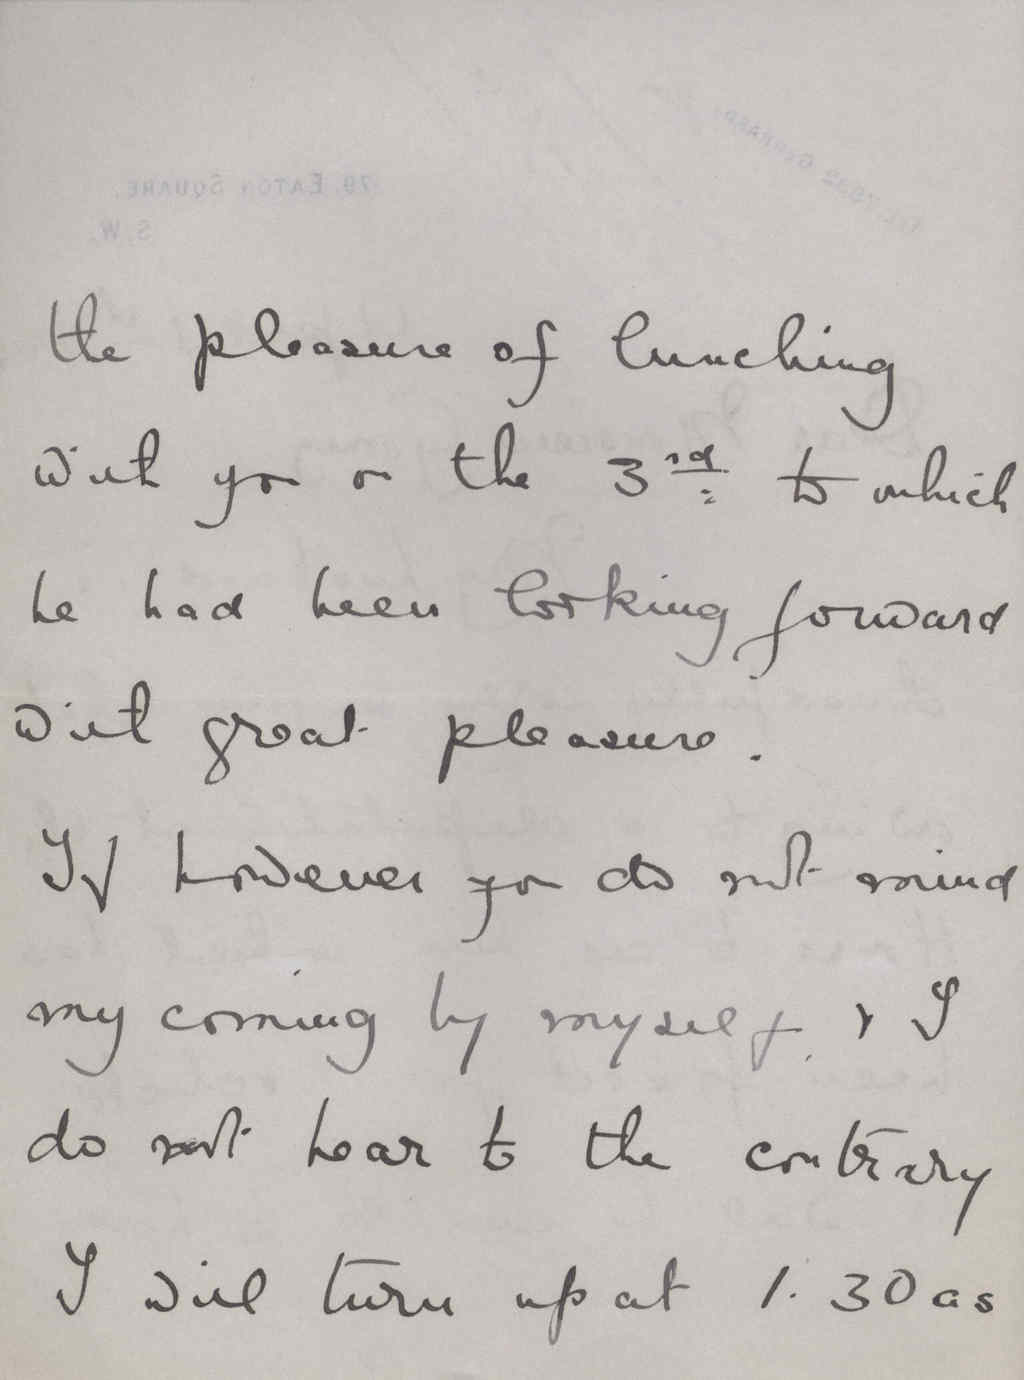 the pleasure of lunching
with you on the 3rd. to which
he had been looking forward
with great pleasure.
If however you do not mind
my coming by myself, & I
do not hear to the contrary
I will turn up at 1.30 as
TEL. 7932 GERRARD.
79, EATON SQUARE.
S.W.